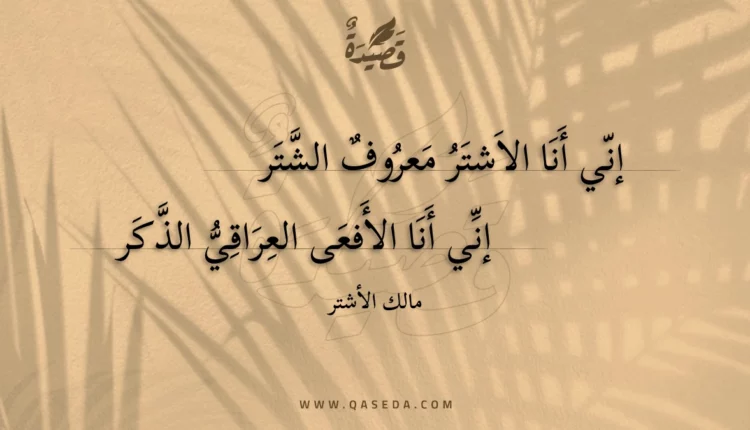 قَصِيدَةٌ
إنّي أَنَا الاَشتَرُ مَعرُوفٌ الشَّتَر
إنِّي أَنَا الأَفعَى العِرَاقِيُّ الذَّكَر
مالك الأشتر
WWW.QASEDA.COM